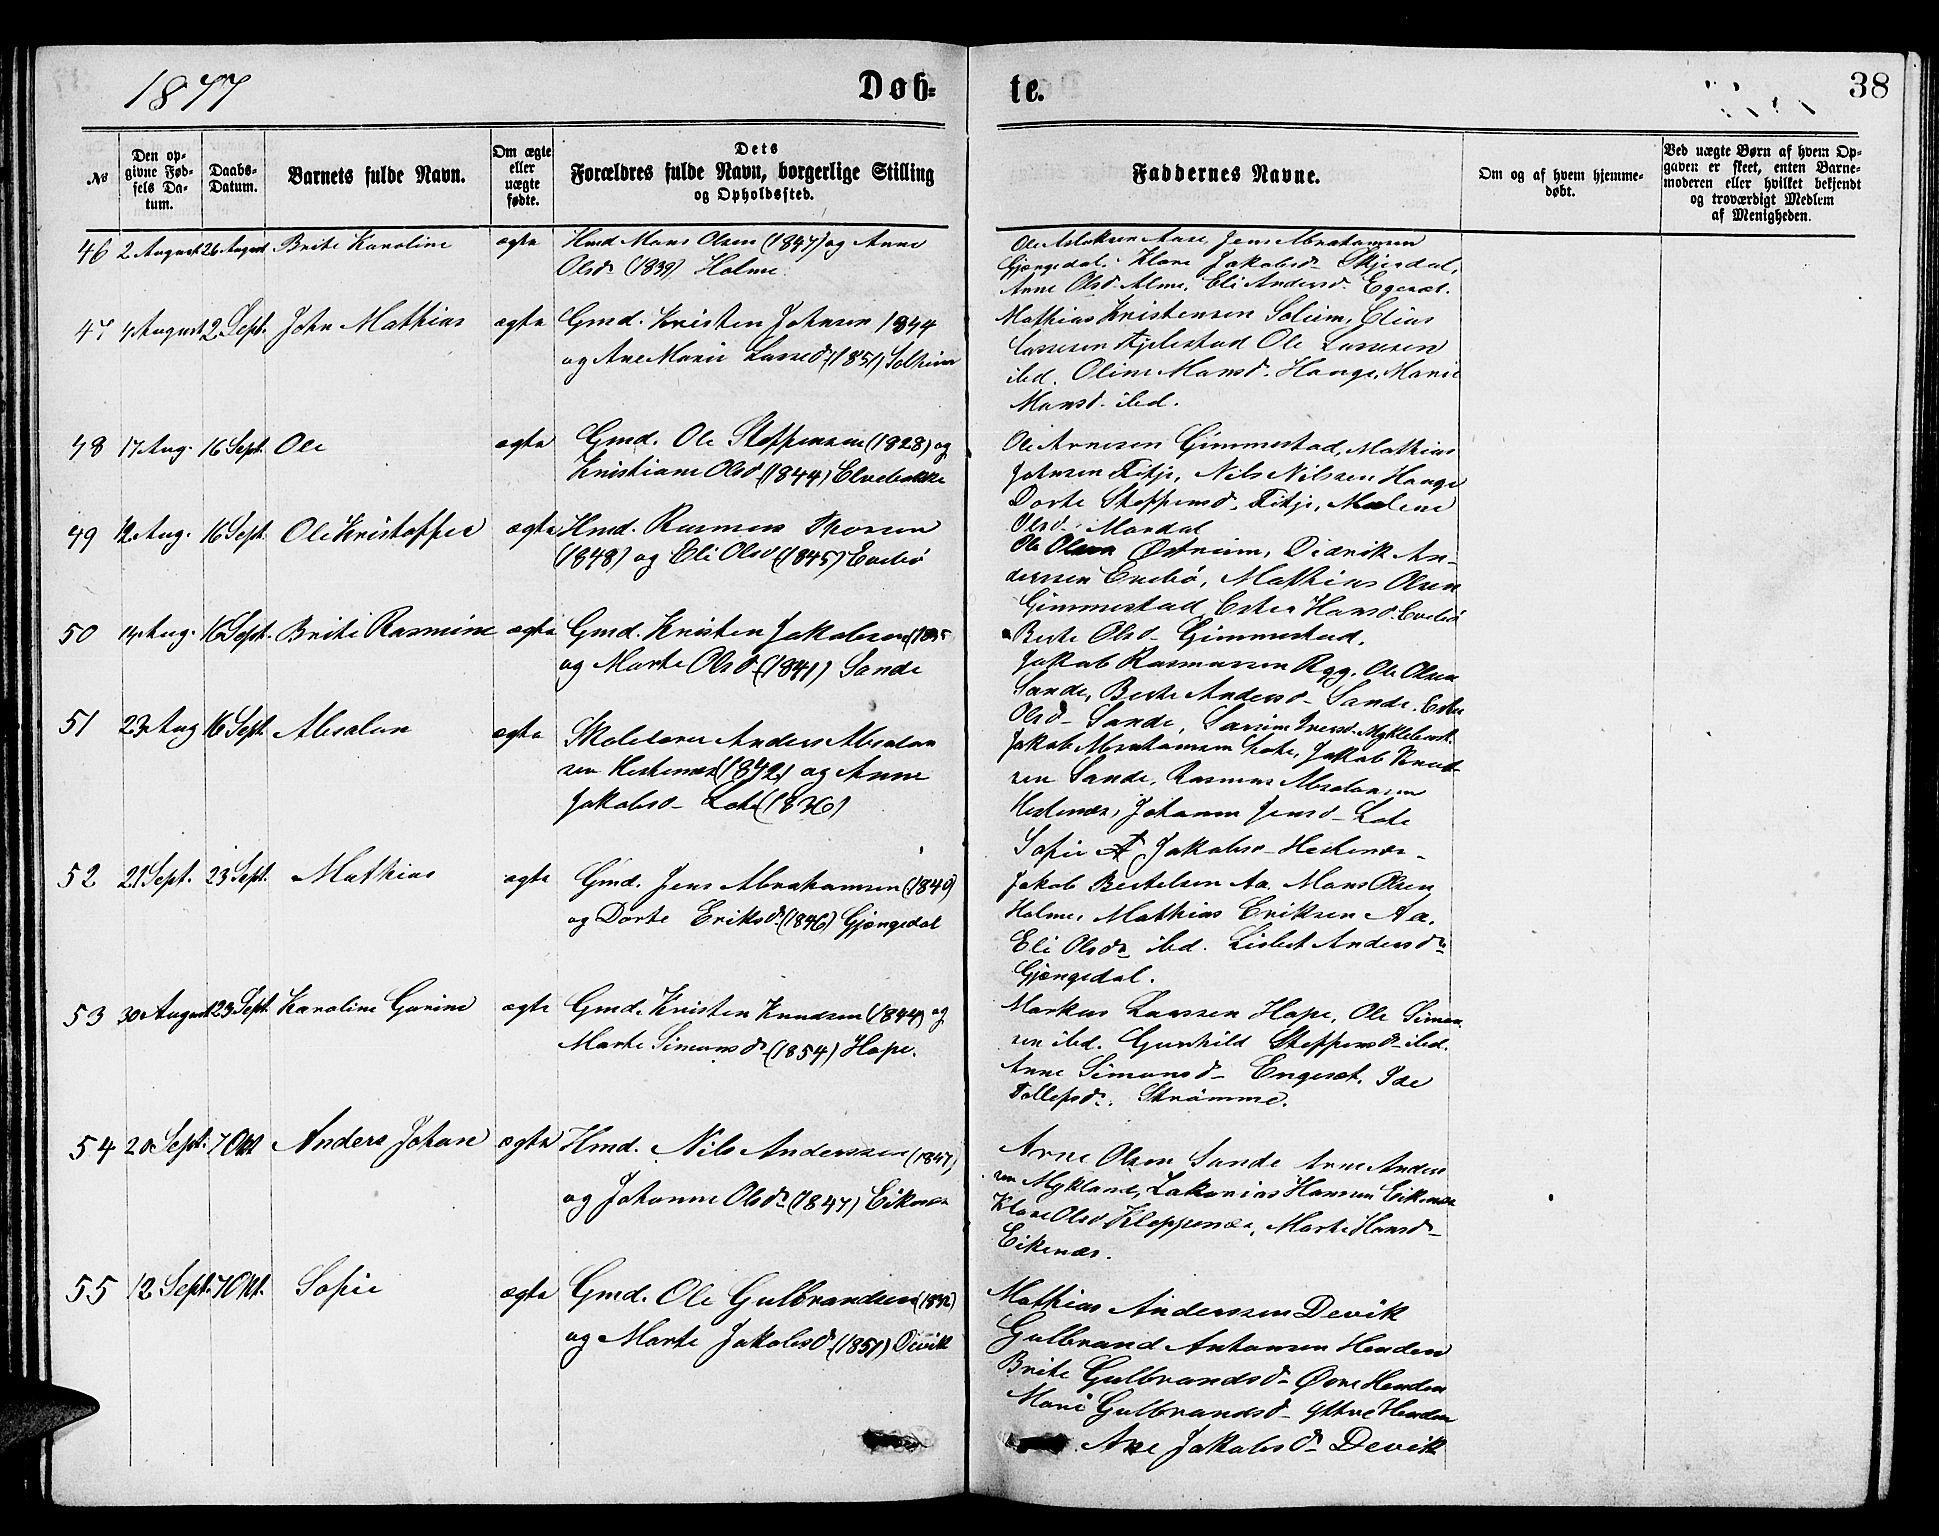 1877
Døb=
te.
38
No
Den op-
givne Fød-
sels Da-
tum.
Daabs-
Datum.
Barnets fulde Navn.
Om ægte
eller
uægte
fødte.
Dets
Forældres fulde Navn, borgerlige Stilling
og Opholdssted.
Faddernes Navne.
Om og af hvem hjemme-
døbt.
Ved uægte Børn af hvem Op-
gaven er skeet, enten Barne-
moderen eller hvilket bekjendt
og troværdigt Medlem
af Menigheden.
46 2 August 26 August Brite Karoline ægte Hmd Mons Olsen (1847) og Anne
Olsd. (1839) Holme.
Ole Aslaksen Aase, Jens Abrahamsen
Gjengedal. Klare Jakobsd- Skjerdal,
Anne Olsd. Alme, Eli Andersd. Egeset.
47 4 August 2 Sept. John Mathias ægte Gmd. Kristen Johnsen 1844
og Ane Marie Lassesd. (1851) Solheim
Mathias Kristensen Soleim, Elias
Lassesen Ajlestad Ole Lassesen
ibd. Oline Monsd. Hauge, Marie
Monsd. ibd.
48 17 Aug. 16 Sept. Ole ægte Gmd. Ole Steffensen (1828) og
Kristiane Olsd (1844) Elvebakke
Ole Arnesen Gimmestad, Mathias
Johnsen Fitje, Nils Nilssen Hauge
Dorte Steffensd. Fitje, Malene
Olsd. Mardal
49 12 Aug. 16 Sept. Ole Kristoffer ægte Hmd. Rasmus Thorsen
(1848) og Eli Olsd (1845) Evebø
Ole Olsen Østreim, Didrik An-
derssen Evebø, Mathias Olsen
Gimmestad, Ester Hansd. Evebø
Berte Olsd- Gimmestad.
50 14 Aug. 16 Sept. Brite Rasmine ægte Gmd. Kristen Jakobsen
og Marte Olsd. (1841) Sande
Jakob Rasmussen Rygg, Ole Olsen
Sande, Berte Andersd- Sande. Ester
Olsd- Sande, Larsine Iversd. Myklebust.
51 23 Aug 16 Sept. Absalon ægte Skolelærer Anders Absalon
sen Hestenæs (1842) og Anne
Jakobsd- Lote (1836)
Jakob Abrahamsen Lote, Jakob Knud-
sen Sande, Rasmus Absalonsen
Hestenæs, Johanne Jensd- Lote
Sofie A Jakobsd- Hestenæs-
52 21 Sept. 23 Sept. Mathias ægte Gmd. Jens Abrahamsen (1840)
og Dorte Eriksd. (1846) Gjengedal
Jakob Bertelsen Aa. Mons Olsen
Holme, Mathias Eriksen Aa.
Eli Olsd- ibd. Lisbet Andersd-
Gjengedal.
53 30 August 23 Sept. Karoline Gurine ægte Gmd. Kristen Knudsen (1844) og
Marte Simonsd- (1854) Hope.
Markus Larssen Hope, Ole Simon
sen ibd. Gunhild Steffensd- ibd.
Anne Simonsd- Engeset. Ide
Tollefsd. Strømme.
54 20 Sept. 7 Okt Anders Johan ægte Hmd. Nils Anderssen (1847)
og Johanne Olsd- (1847) Eikenæs
Arne Olsen Sande Arne Anders
sen Mykland, Zakarias Hansen Eikenæs
Klare Olsd Kleppenæs, Marte Hansd-
Eikenæs.
55 12 Sept. 7 Okt. Sofie ægte Gmd. Ole Gulbrandsen (1832)
og Marte Jakobsd. (1851) Devik
Mathias Anderssen Devik
Gulbrand Antonsen Henden
Brite Gulbrandsd- Øvre Henden
Marie Gulbrandsd- Yttre Henden
Ane Jakobsd- Devik